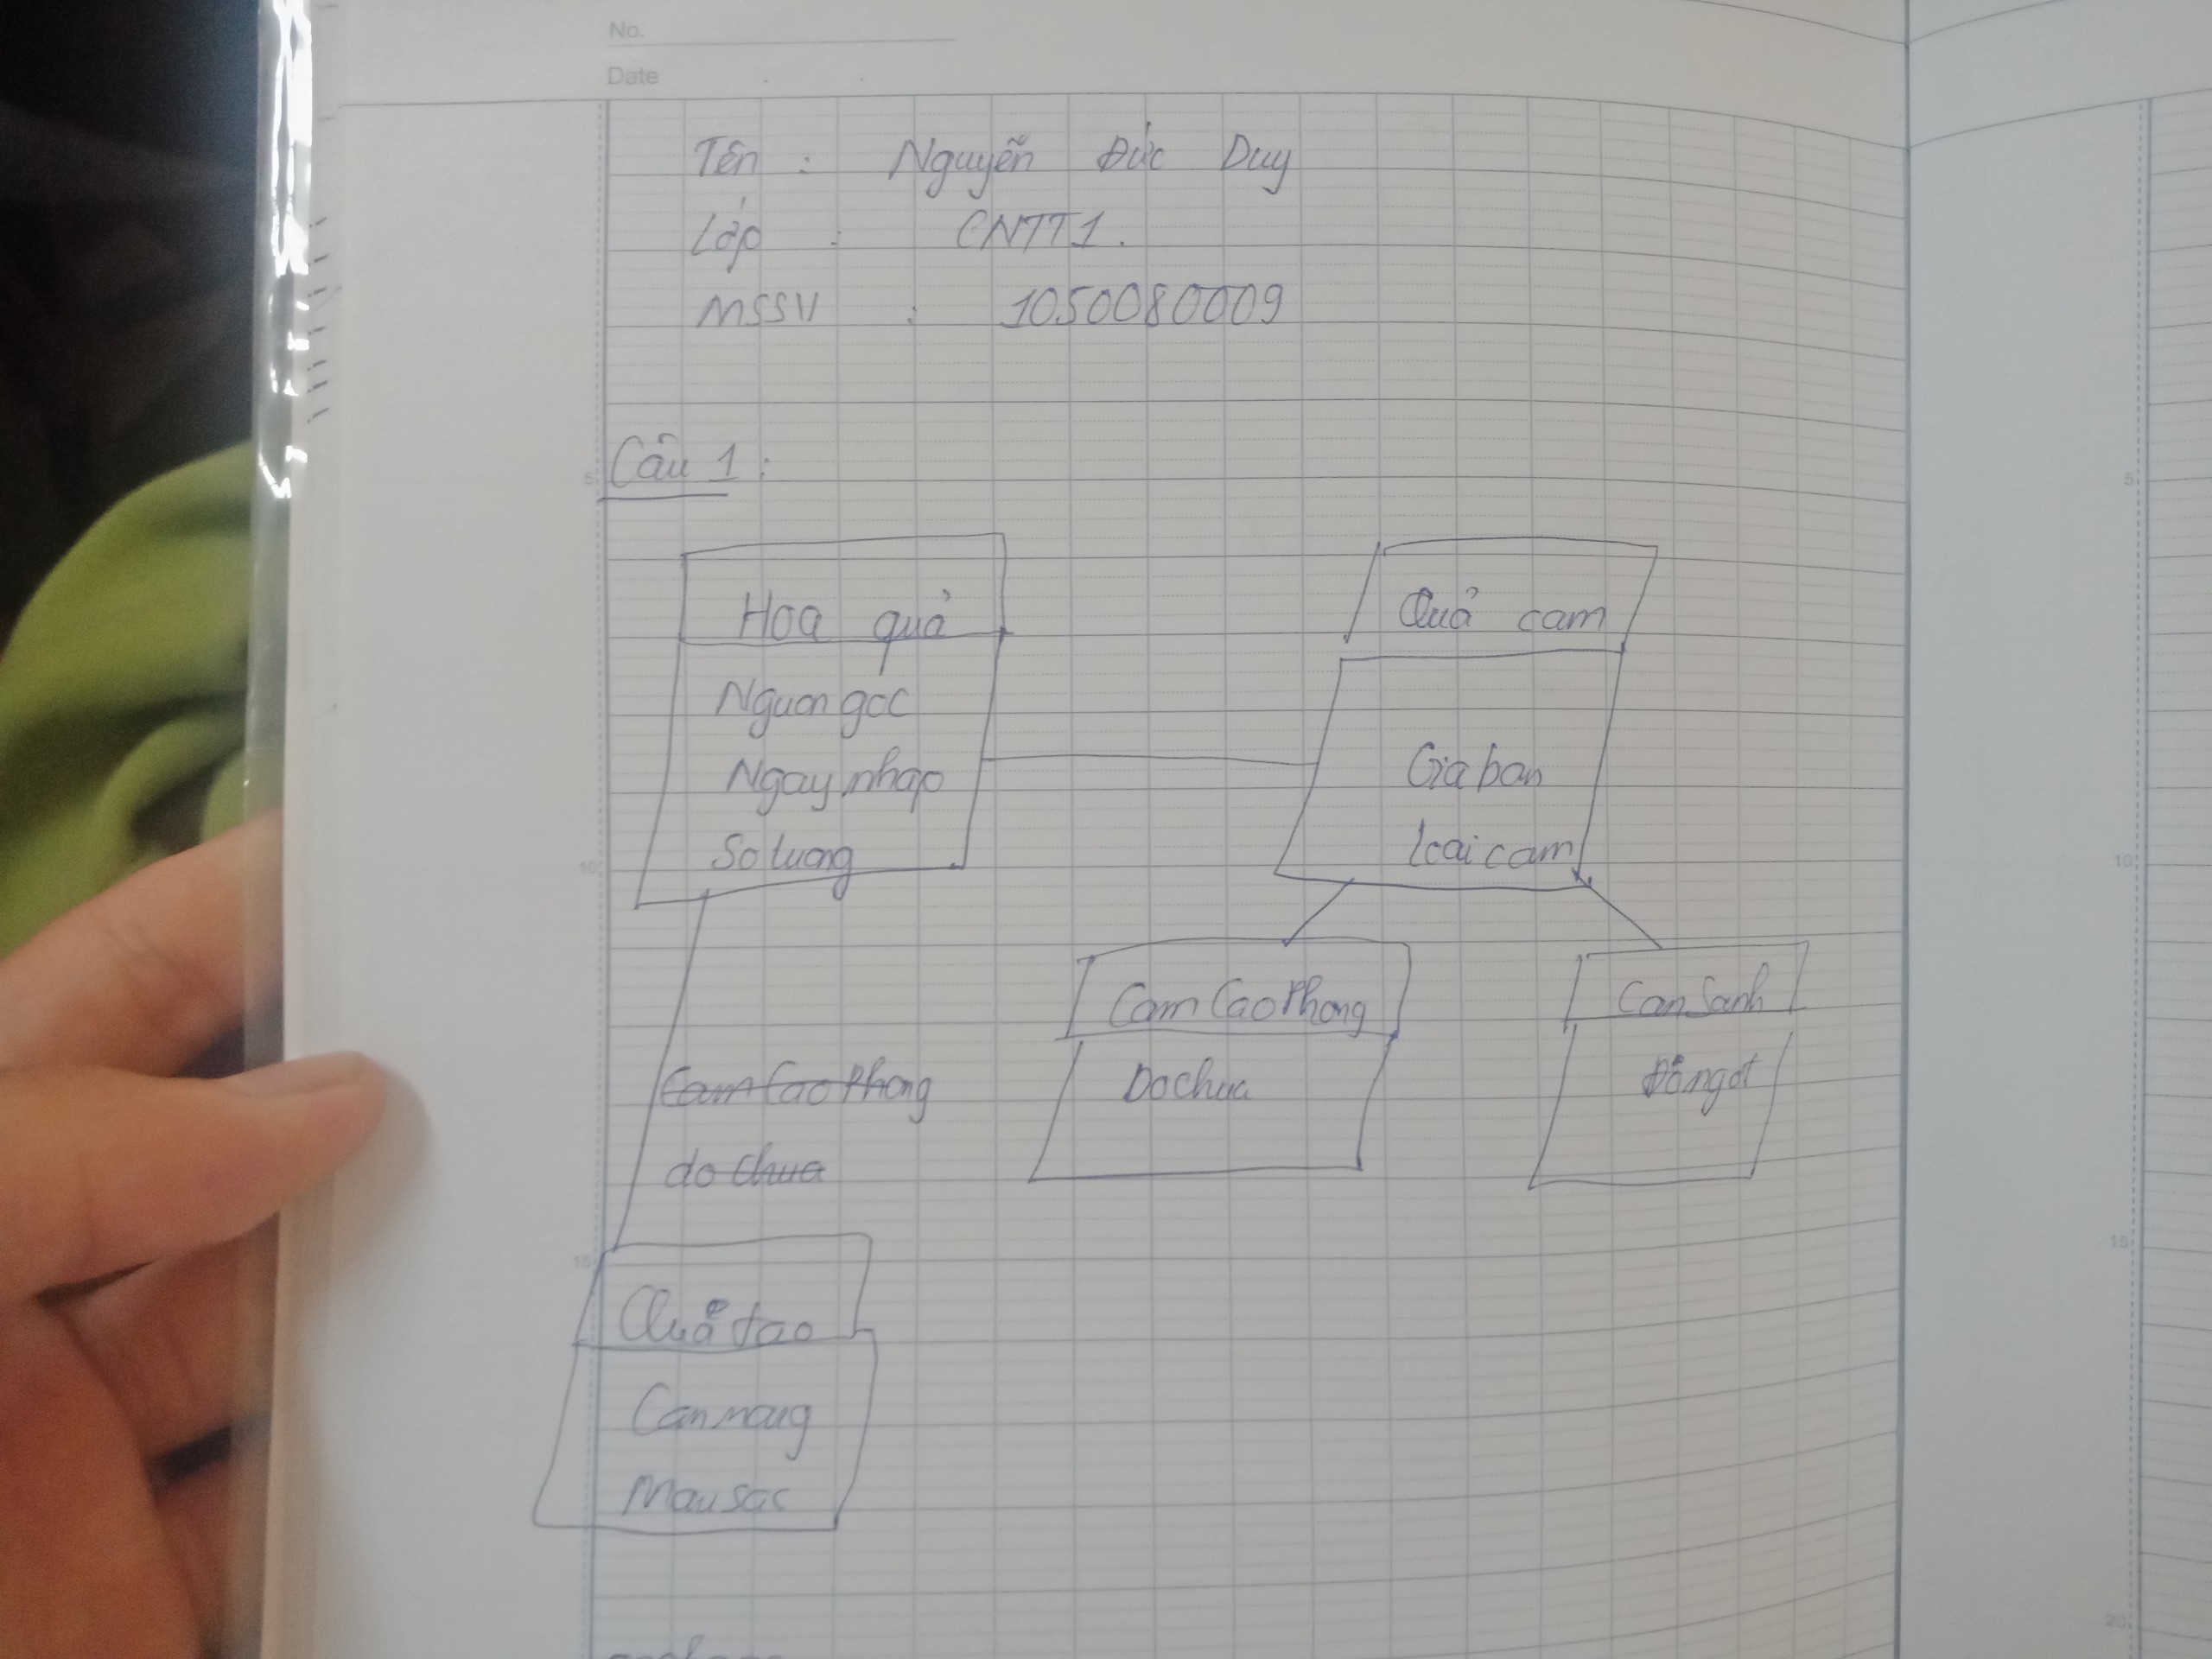 No.
Date
Tên : Nguyễn Đức Duy
Lớp : CNTT1.
MSSV : 1050080009
Câu 1 :
Hoa quả
Nguongoc
Ngaynhap
Soluong
Quả cam
Giaban
loaicam
CamCaoPhong
Dochua
CanSanh
Độngot
CamCaoPhong
dochua
Quả tao
Cannang
Mausac
5
10
15
5
10
15
20